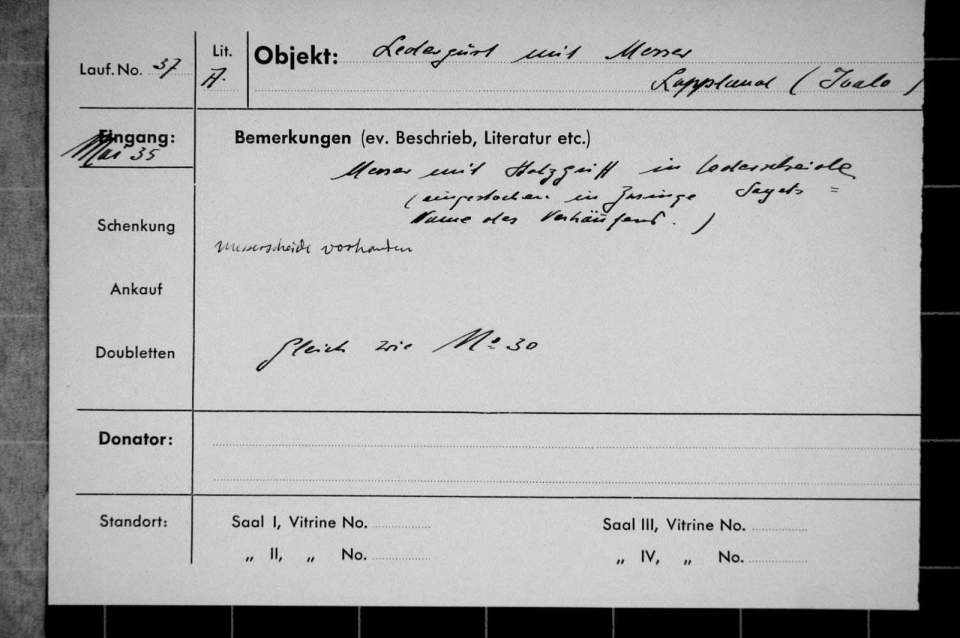 Lauf. No. 37
Lit. A.
Objekt: Ledergurt mit Messer
Lappland (Ivalo)
Eingang: Mai 35
Bemerkungen (ev. Beschrieb, Literatur etc.)
Messer mit Holzgriff in Lederscheide
(eingestochen: in Klinge =
Name des Verkäufers.)
Schenkung
Messerscheide vorhanden
Ankauf
Doubletten
Gleich wie No 30
Donator:
Standort:
Saal I, Vitrine No.
Saal III, Vitrine No.
„ II, „ No.
„ IV, „ No.